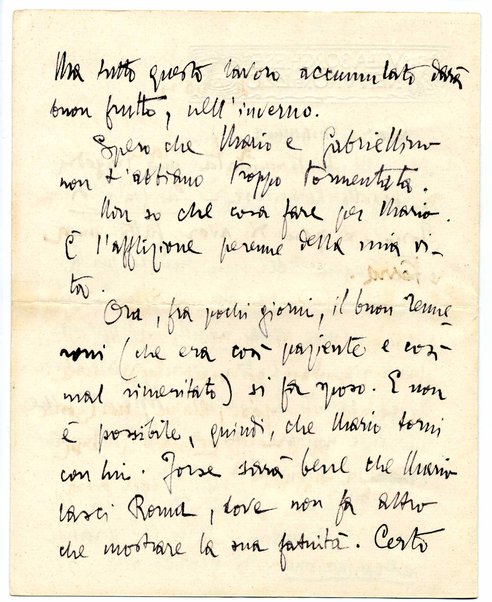 Ma tutto questo lavoro accumulato darà
buon frutto, nell'inverno.
Spero che Mario e Gabriellino
non t'abbiano troppo tormentata.
Non so che cosa fare per Mario.
È l'afflizione perenne della mia vi-
ta.
Ora, fra pochi giorni, il buon Tenne-
roni (che era così paziente e così
mal rimeritato) si fa sposo. E non
è possibile, quindi, che Mario torni
con lui. Forse sarà bene che Mario
lasci Roma, dove non fa altro
che mostrare la sua fatuità. Certo